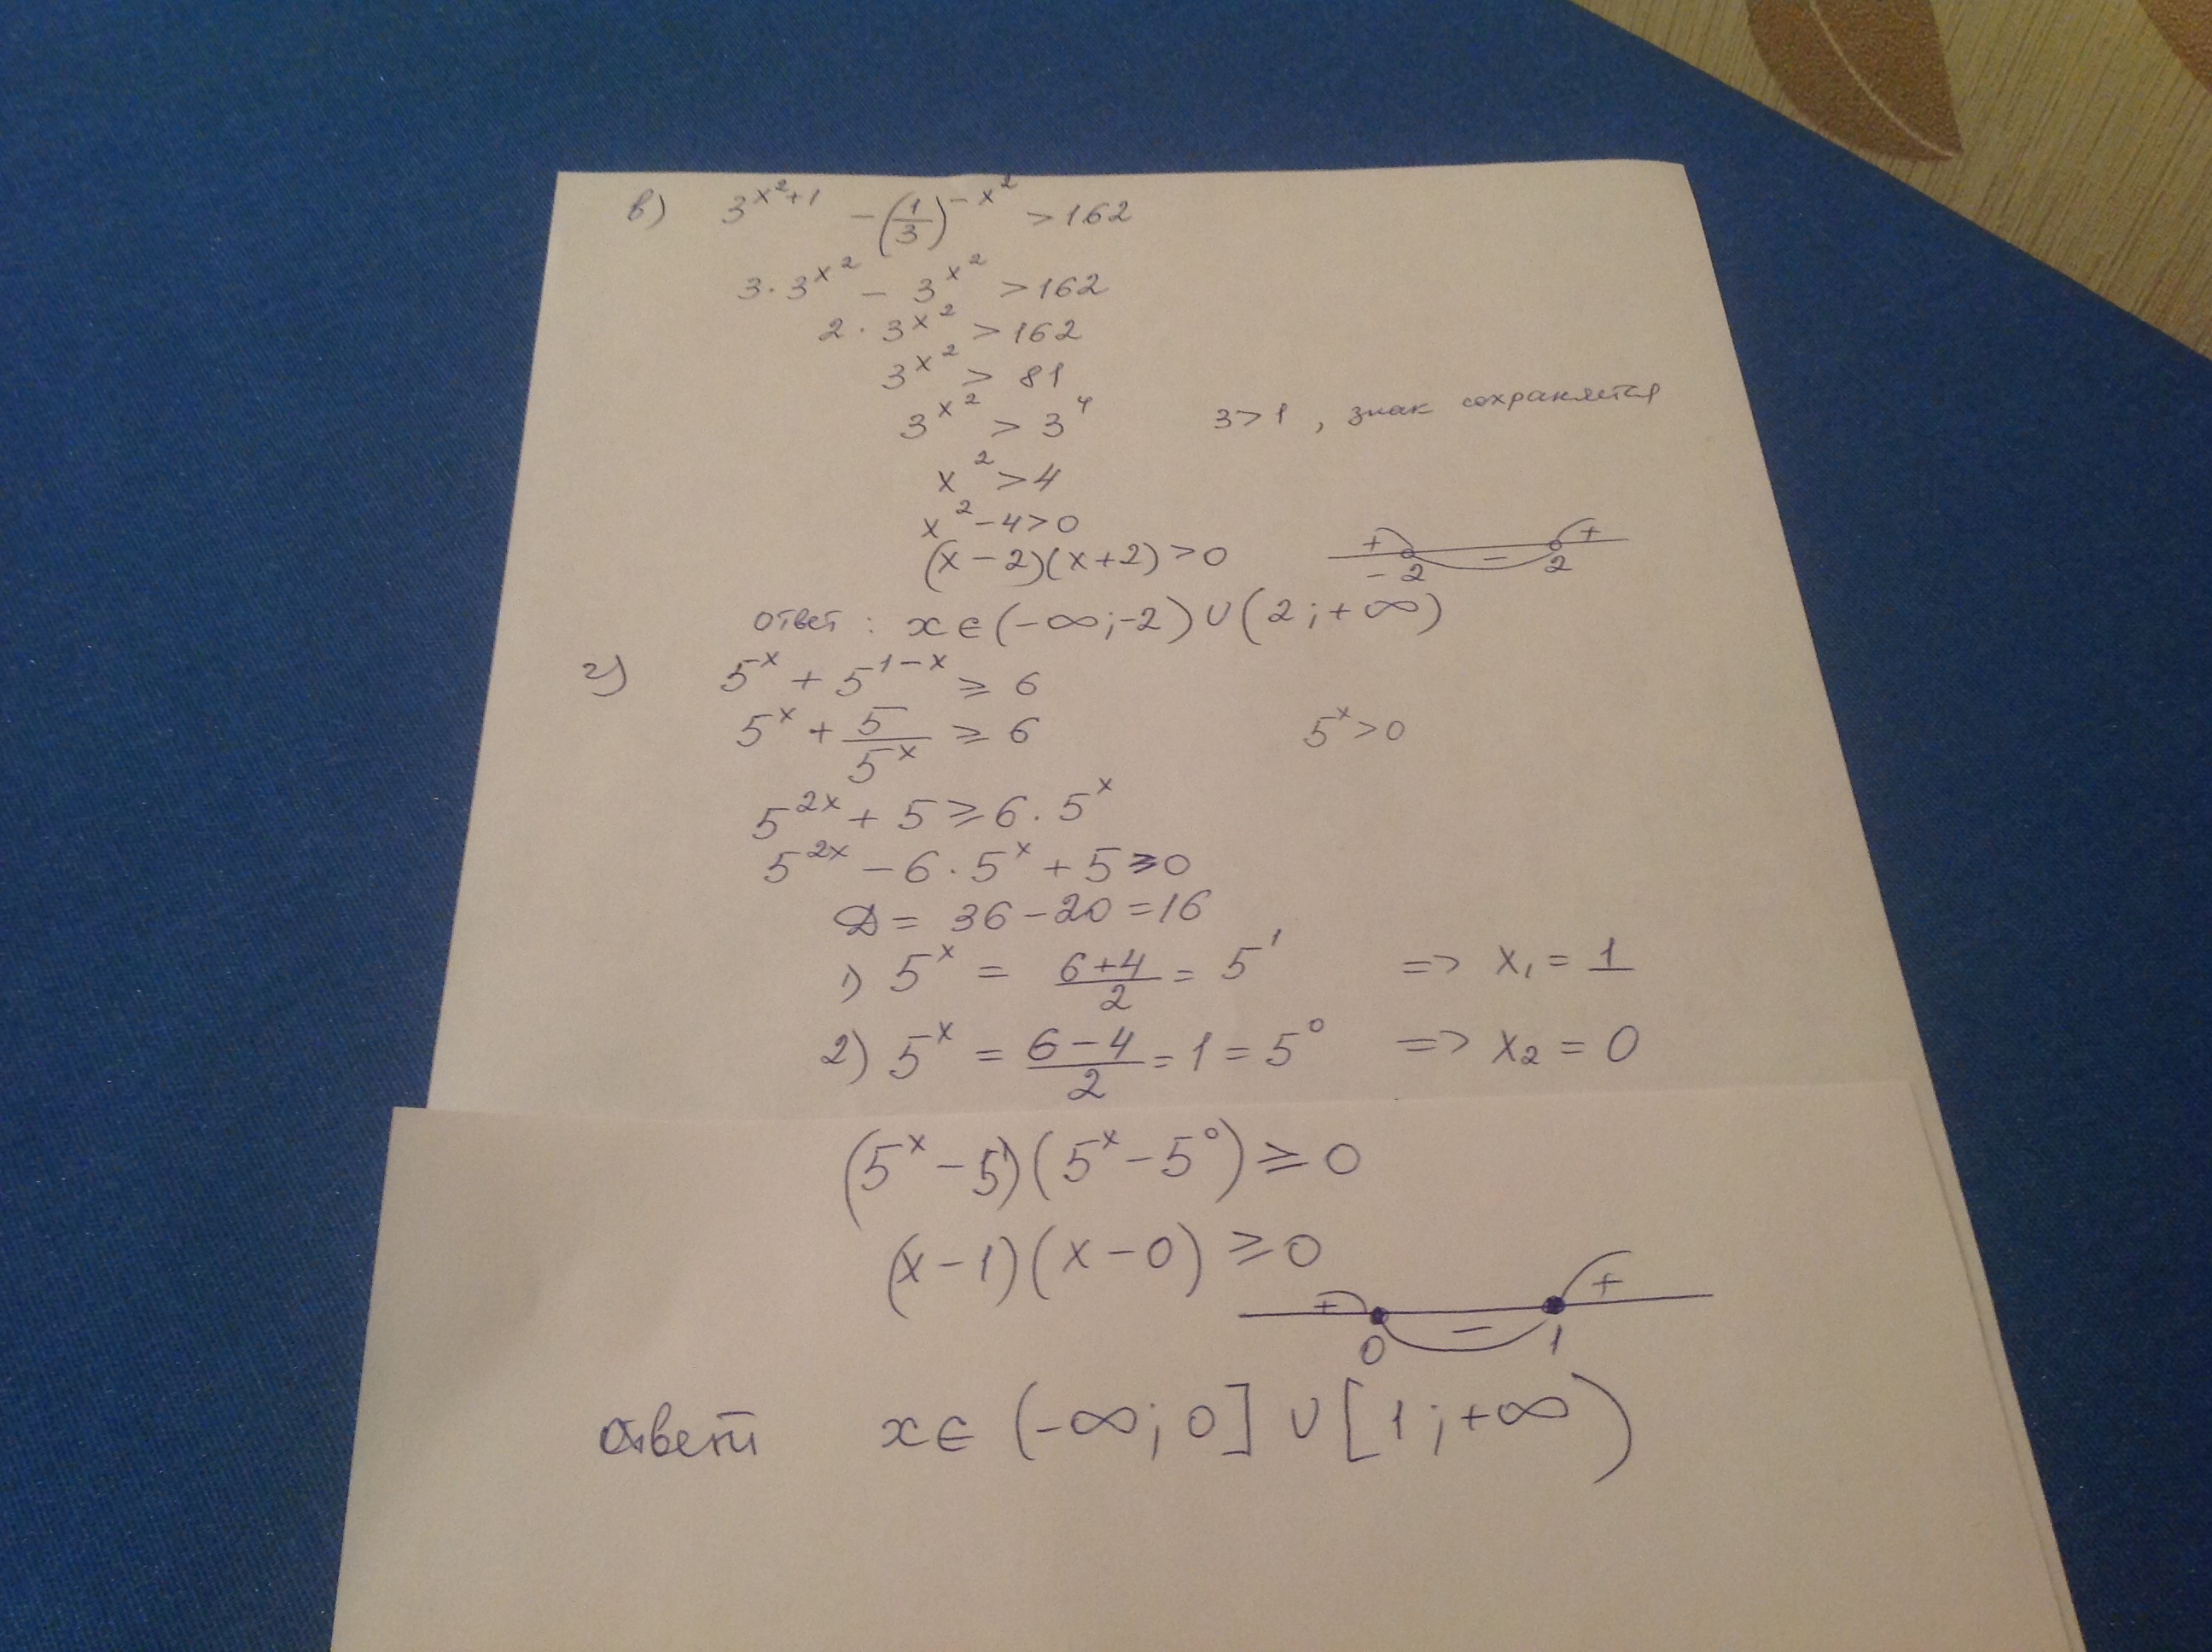 в) 3^{x^2+1} - (1/3)^{-x^2} > 162
3 · 3^{x^2} - 3^{x^2} > 162
2 · 3^{x^2} > 162
3^{x^2} > 81
3^{x^2} > 3^4 3 > 1 , знак сохраняется
x^2 > 4
x^2 - 4 > 0
(x - 2)(x + 2) > 0 + - +
-2 2
ответ : x ∈ (-∞; -2) ∪ (2 ; +∞)
г) 5^x + 5^{1-x} ≥ 6
5^x + 5/5^x ≥ 6 5^x > 0
5^{2x} + 5 ≥ 6 · 5^x
5^{2x} - 6 · 5^x + 5 ≥ 0
D = 36 - 20 = 16
1) 5^x = (6+4)/2 = 5^1 => x₁ = 1
2) 5^x = (6-4)/2 = 1 = 5^0 => x₂ = 0
(5^x - 5^1)(5^x - 5^0) ≥ 0
(x - 1)(x - 0) ≥ 0
+ - +
0 1
Ответ x ∈ (-∞; 0] ∪ [1 ; +∞)